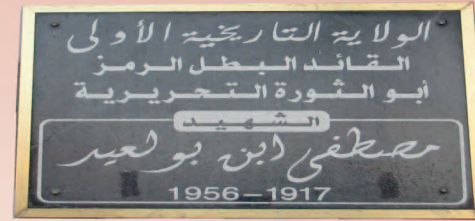 الولاية التاريخية الأولى
القائد البطل الرمز
أبو الثورة التحريرية
الشهيد
مصطفى ابن بولعيد
1917–1956